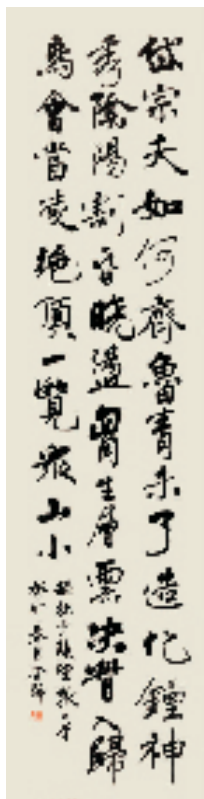 岱宗夫如何齊魯青未了造化鍾神
秀陰陽割昏曉盪胷生層雲決眥入歸
鳥會當凌絕頂一覽眾山小